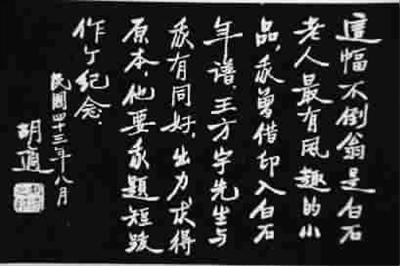 這幅不倒翁是白石
老人最有風趣的小
品，我曾借印入白石
年譜。王方宇先生与
我有同好，出力求得
原本，他要我題短跋
作个紀念。
民國四十三年八月
胡適